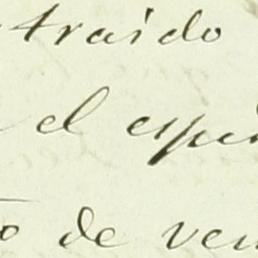 traido
el espi
o de ven